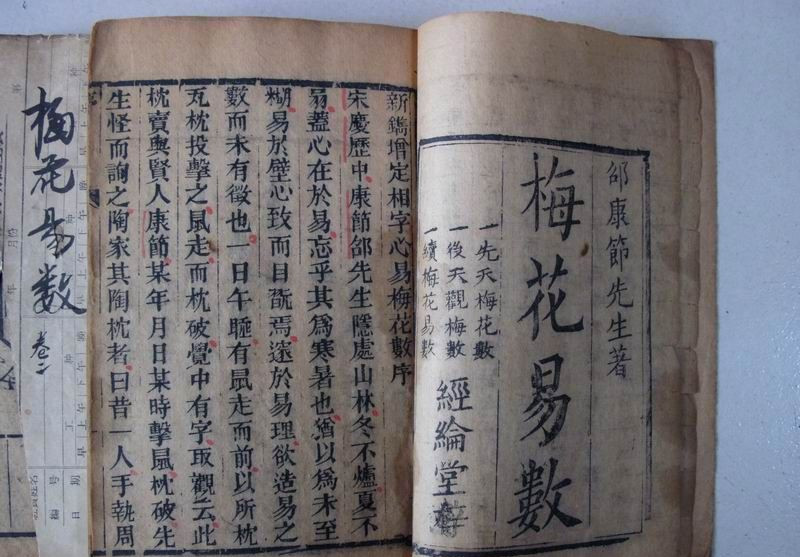 邵康節先生著
梅花易數
一先天梅花數
一後天觀梅數
一續梅花易數
經綸堂
新鐫增定相字心易梅花數序
宋慶歷中康節邵先生隱處山林冬不爐夏不
扇蓋心在於易忘乎其為寒暑也猶以為未至
糊易於壁心致而目翫焉邃於易理欲造易之
數而未有徵也一日午睡有鼠走而前以所枕
瓦枕投擊之鼠走而枕破覺中有字取觀云此
枕賣與賢人康節某年月日某時擊鼠枕破先
生怪而詢之陶家其陶枕者曰昔一人手執周
梅花易數
卷二